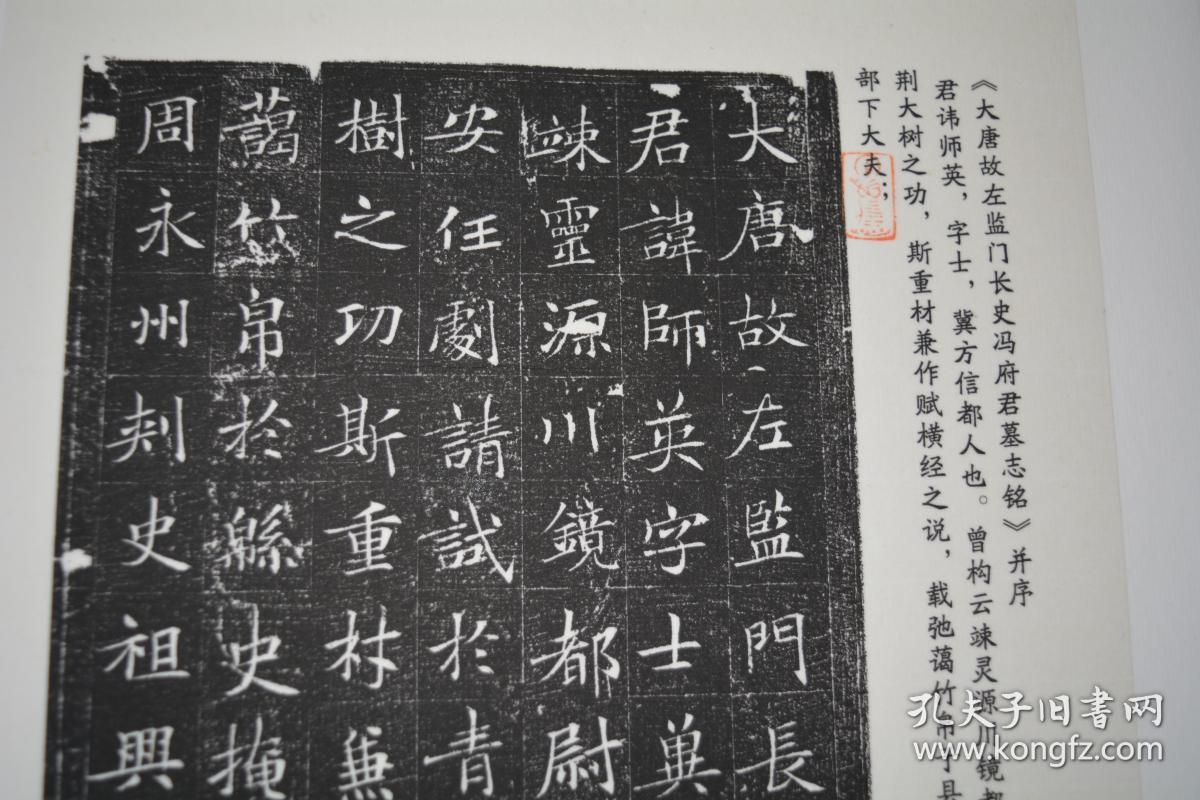 《大唐故左监门长史冯府君墓志铭》并序
君讳师英，字士，冀方信都人也。曾构云竦灵源川镜都
荆大树之功，斯重材兼作赋横经之说，载弛蔼竹帛于县
部下大夫；
大唐故左監門長
君諱師英字士兾
竦靈源川鏡都尉
安任劇請試於青
樹之功斯重材兼
藹竹帛於縣史掩
周永州刾史祖興
孔夫子旧书网
www.kongfz.com